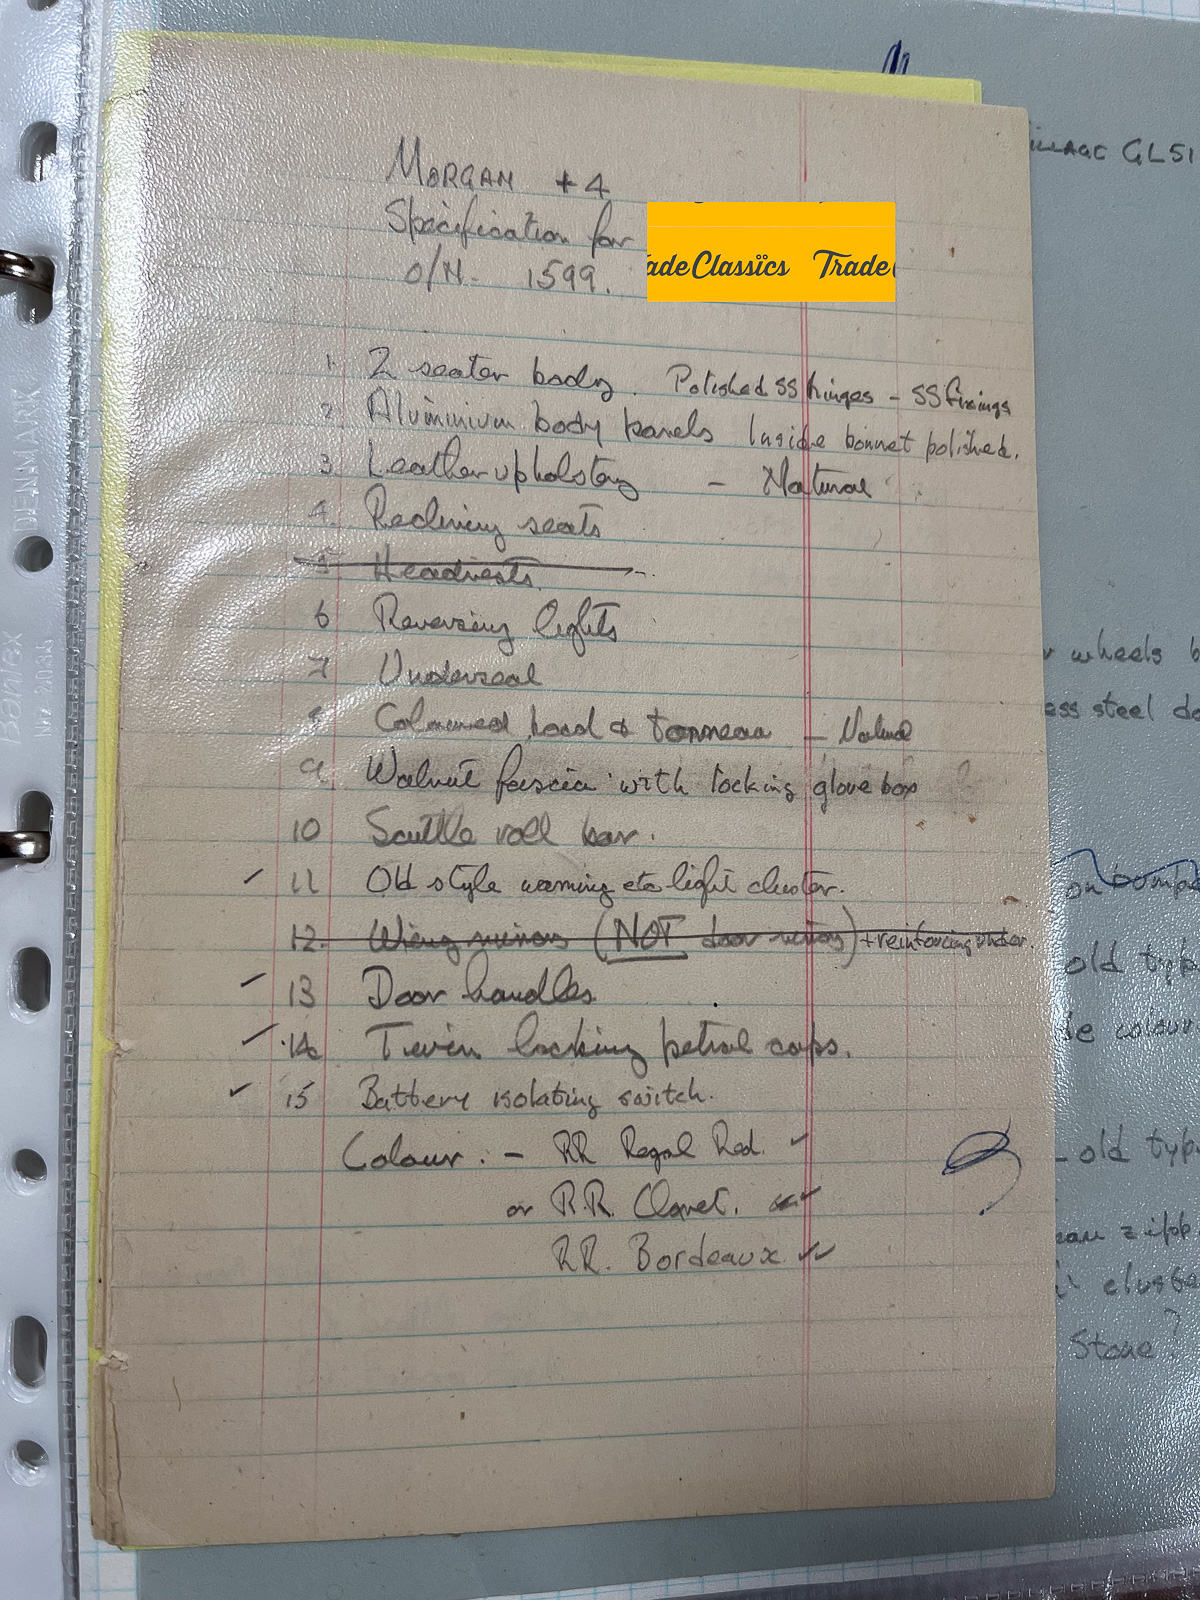 MORGAN +4
Specification for
O/N - 1599.
adeClassics Trade
1. 2 seater body. Polished SS hinges - SS fixings
2 Aluminium body panels Inside bonnet polished.
3 Leather upholstery - Natural
4. Reclining seats
5 Headrests
6 Reversing lights
7 Underseal
8 Coloured hood & tonneau - Natural
9 Walnut fascia with locking glove box
10 Scuttle roll bar.
✓ 11 Old style warning etc light cluster.
12. Wing mirrors (NOT door mirrors) + reinforcing under.
✓ 13 Door handles
✓ 14 Twin locking petrol caps.
✓ 15 Battery isolating switch.
Colour: - RR Regal Red. ✓
or R.R. Claret. ✓✓
RR. Bordeaux ✓✓
ILLAGE GL51
wheels
ess steel
on bump
old typ
colour
- old typ
zipp
cluste
Stone?
Bantex
DENMARK